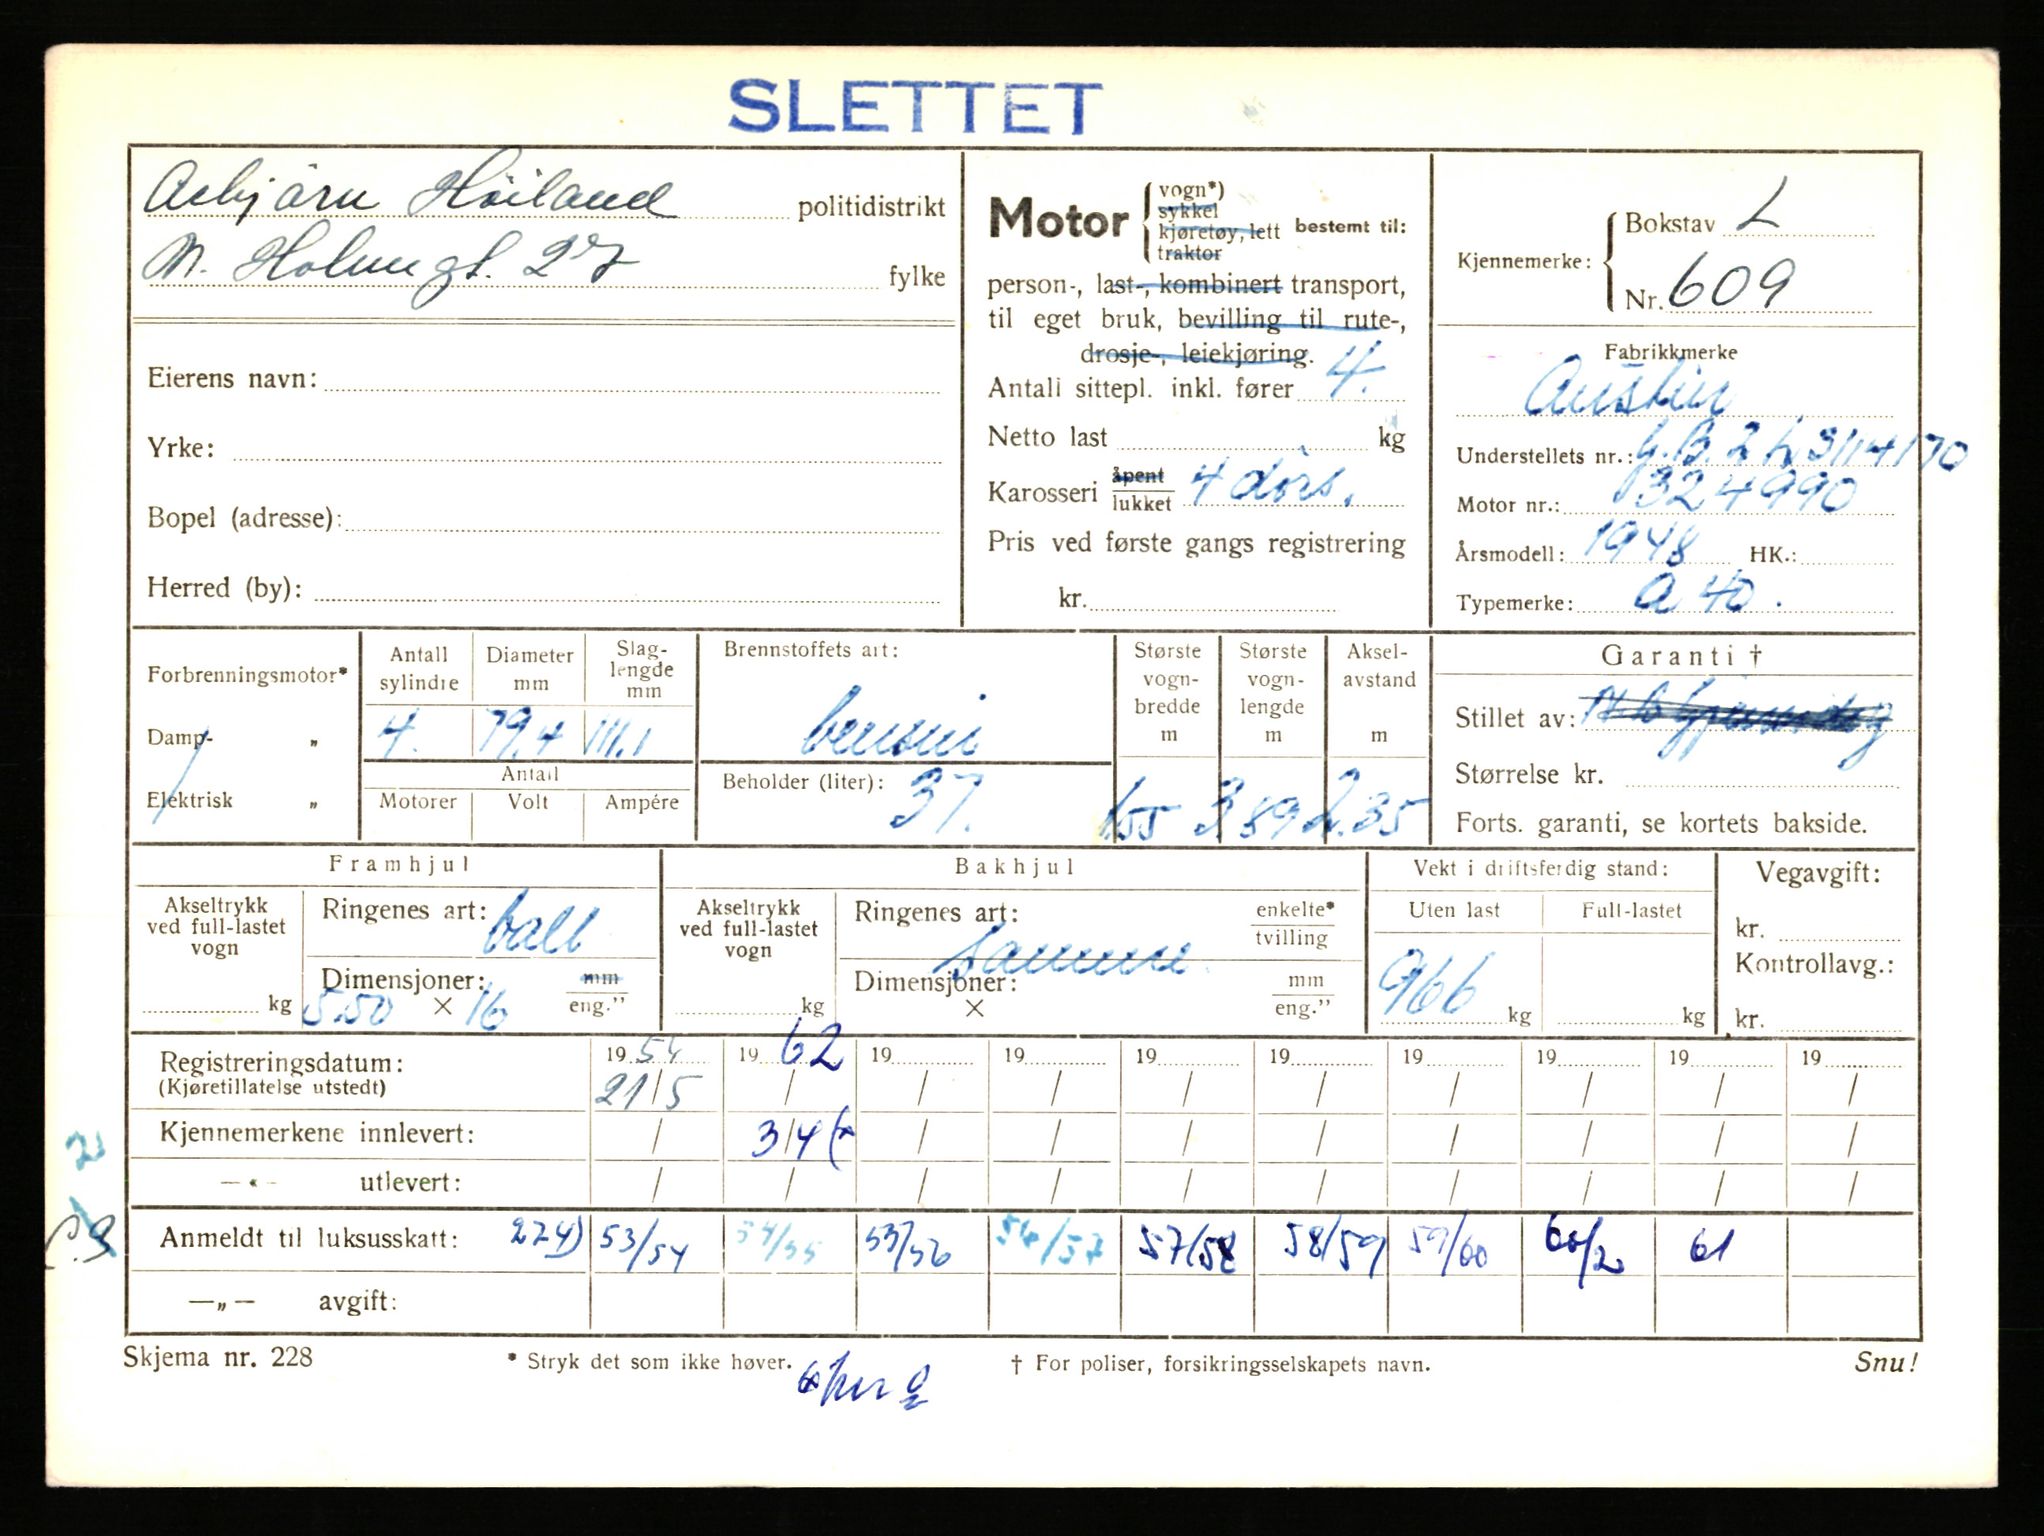 SLETTET
Asbjørn Höiland politidistrikt
fylke
Eierens navn:
Yrke:
Bopel (adresse):
Herred (by):
Motor { vogn*)
sykkel
kjøretøy, lett bestemt til:
traktor
person-, last-, kombinert transport,
til eget bruk, bevilling til rute-,
drosje-, leiekjøring.
Antall sittepl. inkl. fører 4.
Netto last kg
Karosseri åpent
lukket 4 dörs.
Pris ved første gangs registrering
kr.
Kjennemerke: { Bokstav L
Nr. 609
Fabrikkmerke
Austin
Understellets nr.:
Motor nr.: 1324990
Årsmodell: 1948 HK.:
Typemerke: A 40.
Forbrenningsmotor*
Damp- „
Elektrisk „
Antall sylindre Diameter mm Slag-lengde mm
4. 79,4 111,1
Antall
Motorer Volt Ampére
Brennstoffets art:
bensin
Beholder (liter): 37.
Største vogn-bredde m Største vogn-lengde m Aksel-avstand m
1.55 3.89 2.35
Garanti †
Stillet av:
Størrelse kr.
Forts. garanti, se kortets bakside.
Framhjul
Akseltrykk ved full-lastet vogn
kg
Ringenes art: ball
Dimensjoner: mm
5.50 × 16 eng.”
Bakhjul
Akseltrykk ved full-lastet vogn
kg
Ringenes art: enkelte*
tvilling
samme
Dimensjoner: mm
× eng.”
Vekt i driftsferdig stand:
Uten last Full-lastet
966 kg kg
Vegavgift:
kr.
Kontrollavg.:
kr.
Registreringsdatum: 19 54 19 62 19 19 19 19 19 19 19 19
(Kjøretillatelse utstedt) 21/5 / / / / / / / / /
Kjennemerkene innlevert: / 3/4 / / / / / / / /
—«— utlevert: / / / / / / / / / /
Anmeldt til luksusskatt: 224) 53/54 54/55 55/56 56/57 57/58 58/59 59/60 60/2 61
—„— avgift:
Skjema nr. 228 * Stryk det som ikke høver. † For poliser, forsikringsselskapets navn. Snu!